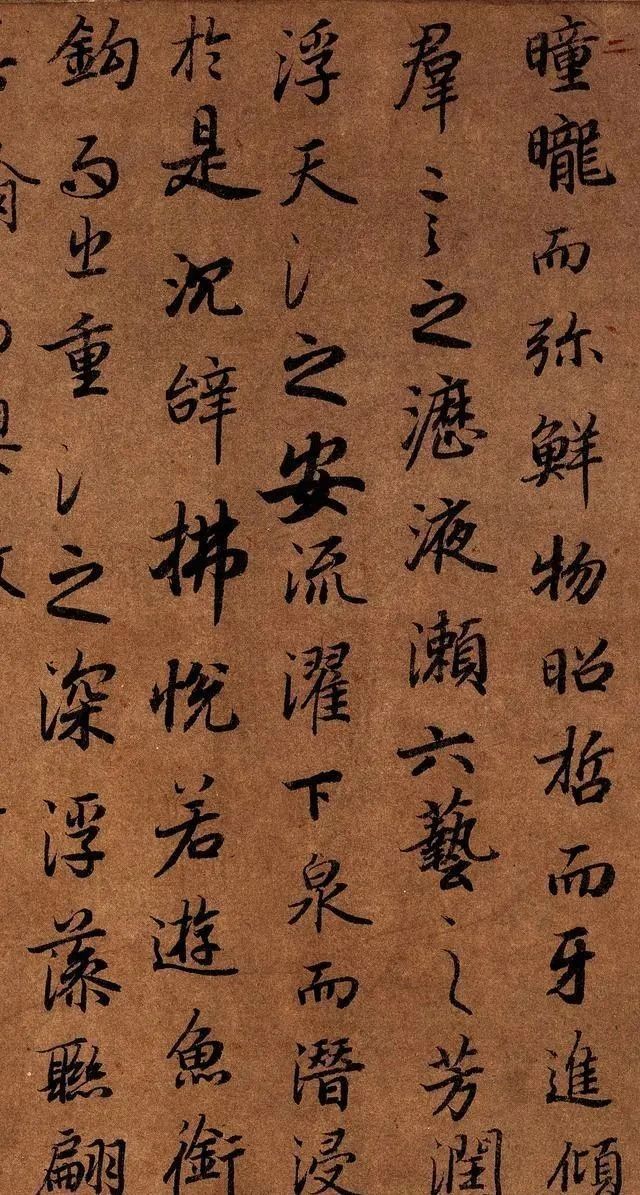 曈曨而弥鮮物昭晢而牙進傾
羣言之瀝液瀨六藝之芳潤
浮天氵之安流濯下泉而潛浸
於是沉辝拂悅若遊魚銜
鈎而出重氵之深浮藻聮翩